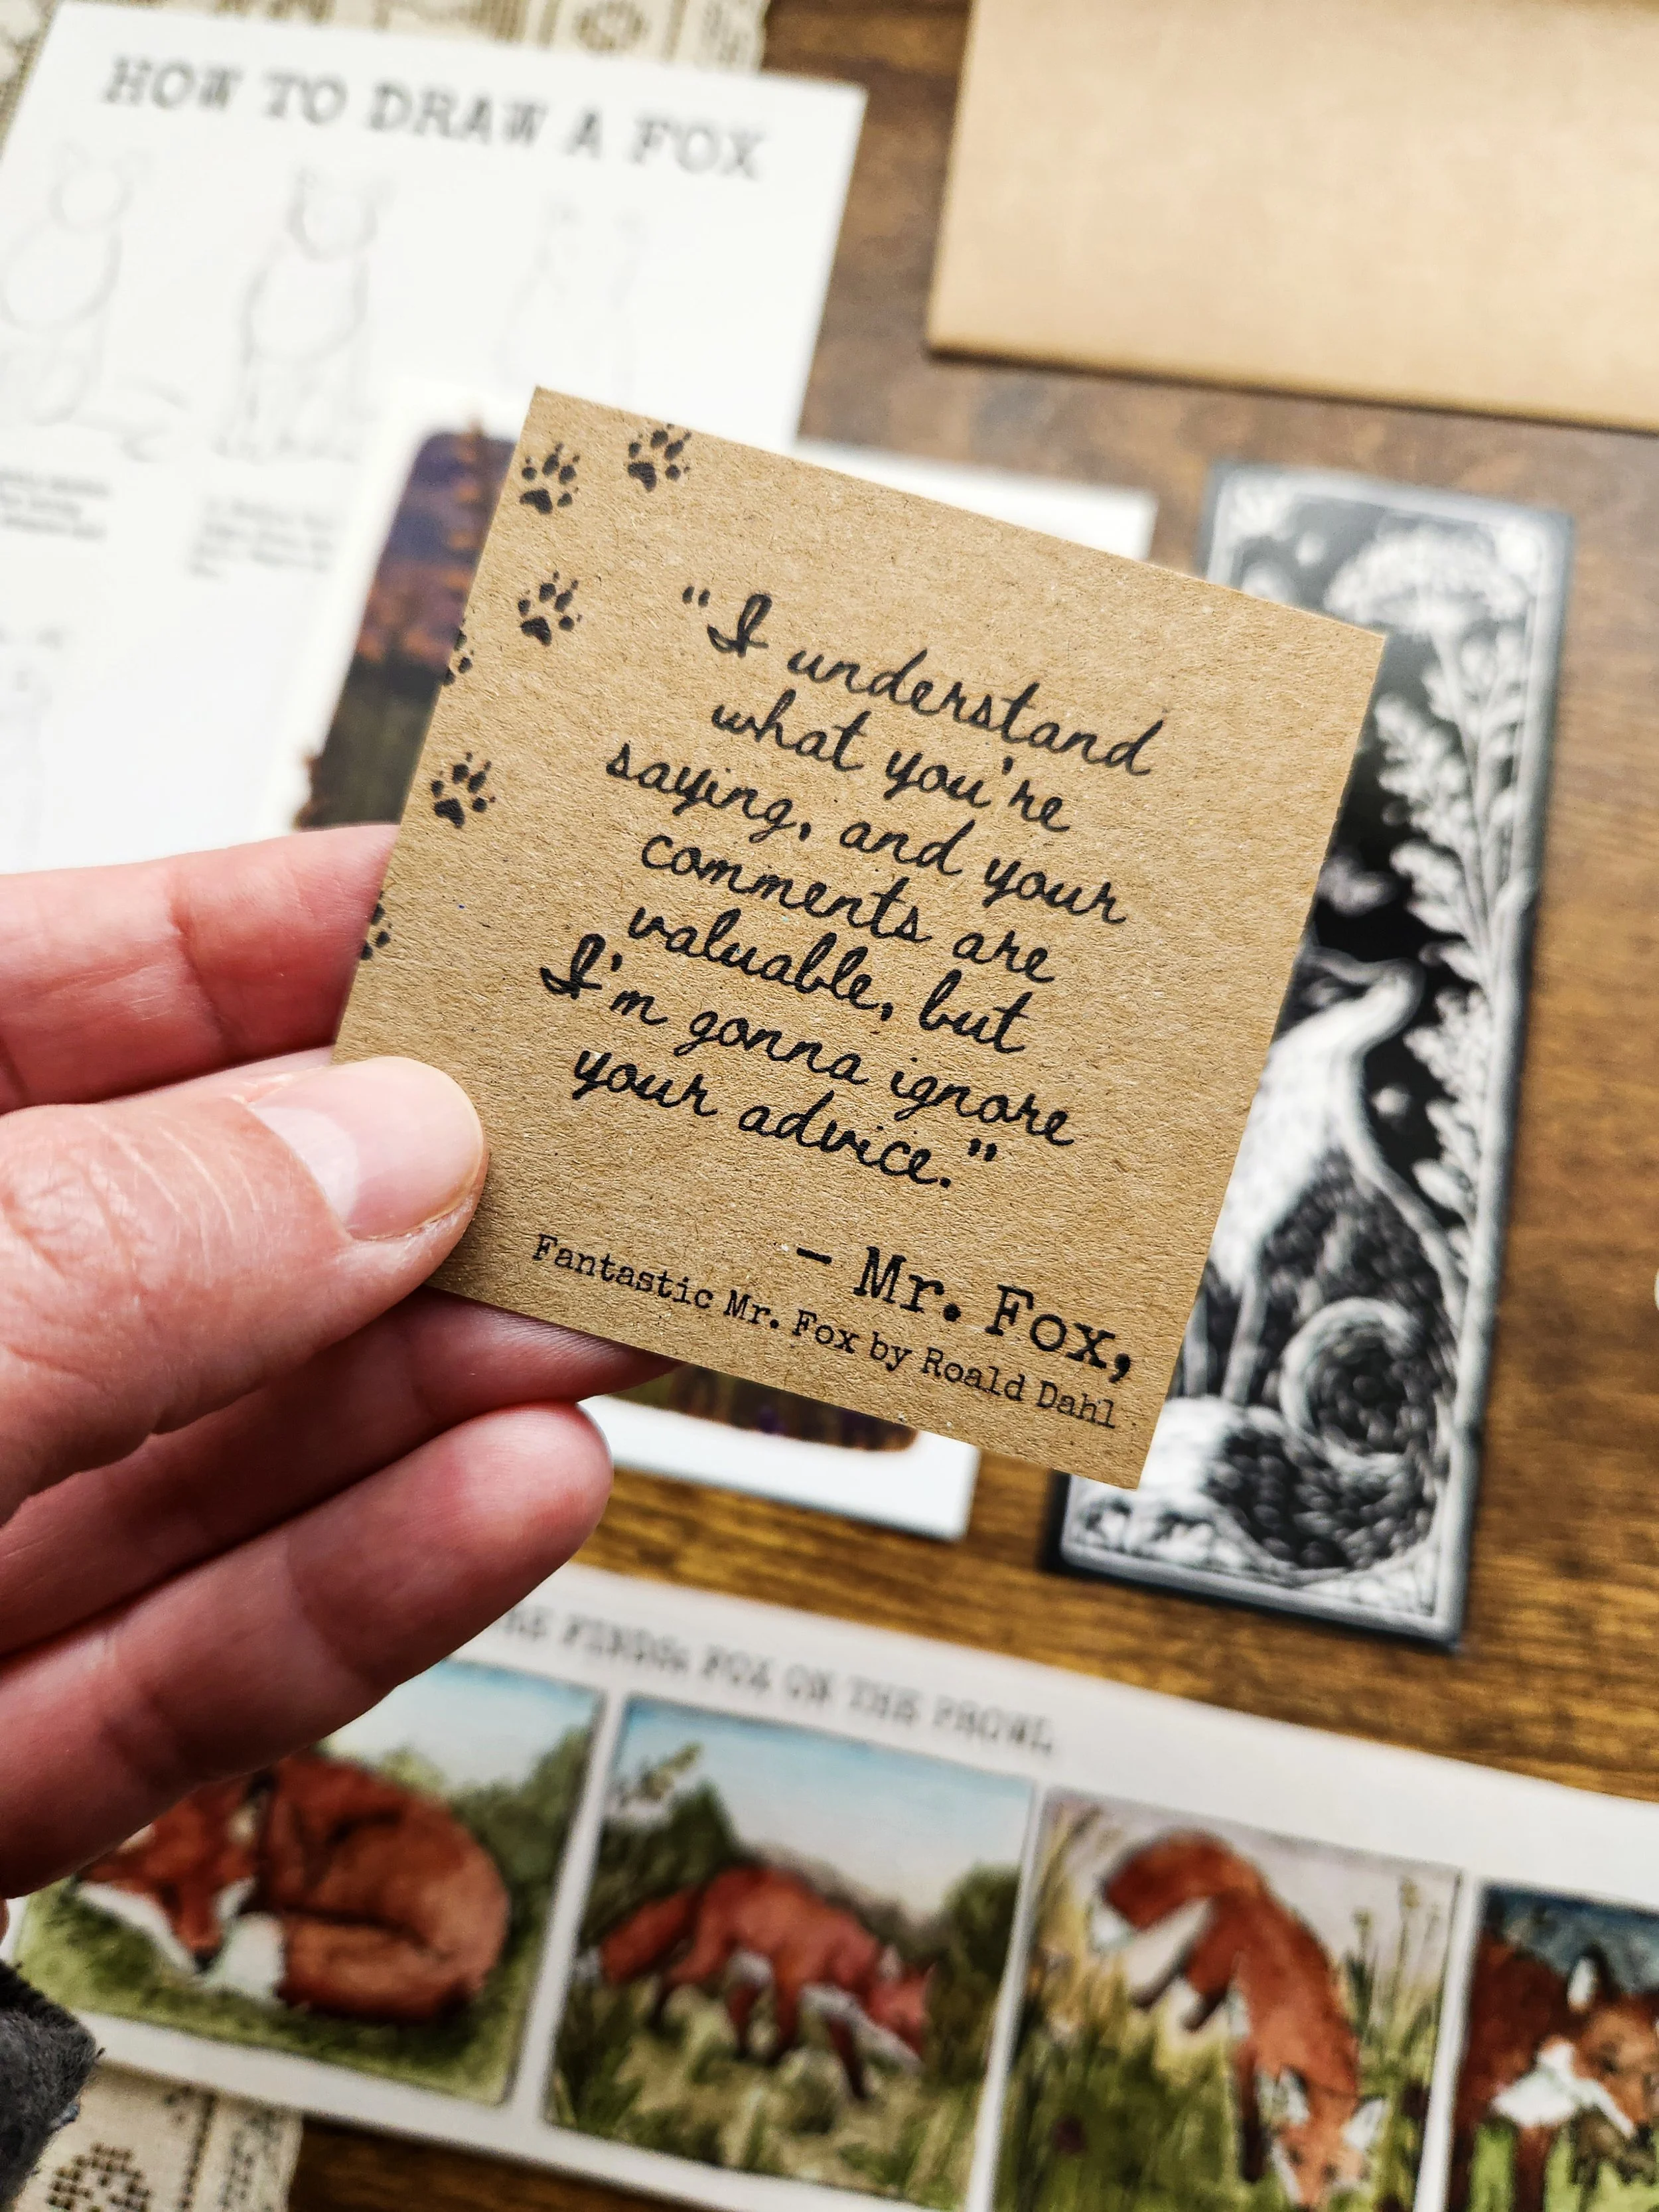 HOW TO DRAW A FOX
"I understand
what you're
saying, and your
comments are
valuable, but
I'm gonna ignore
your advice."
- Mr. Fox,
Fantastic Mr. Fox by Roald Dahl
FINDS: FOX ON THE PROWL